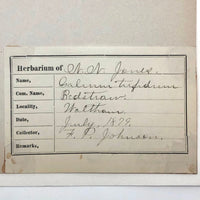 Herbarium of N. N. Jones.
Name, Galium trifidum
Com. Name, Bedstraw.
Locality, Waltham
Date, July, 1879.
Collector, F. P. Johnson.
Remarks,